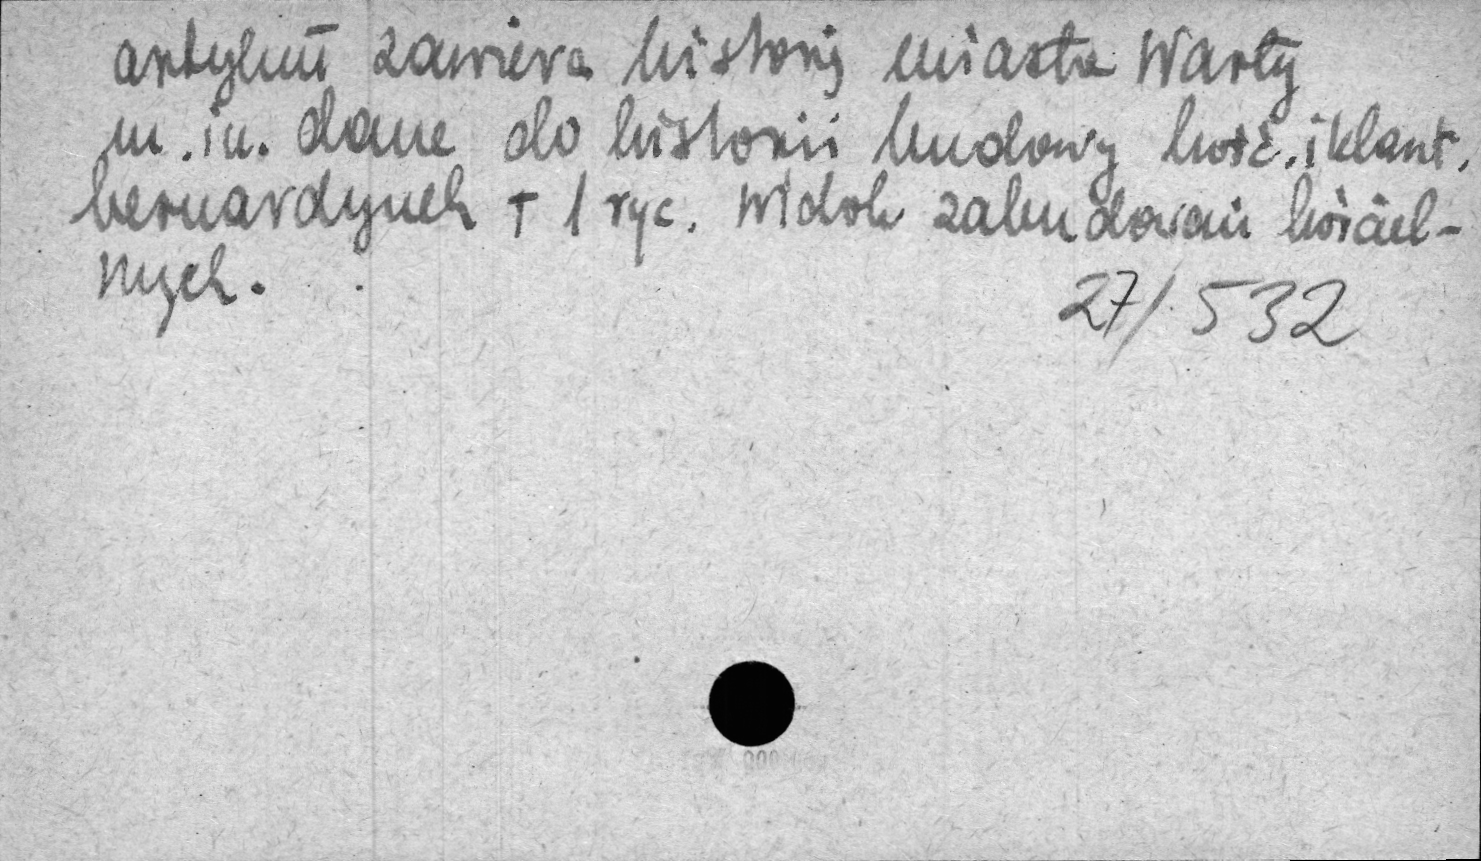 artykuł zawiera historię miasta Warty
m.in. dane do historii budowy kość. i klaszt.
bernardynek + 1 ryc. widok zabudowań kościel-
nych.
27/532